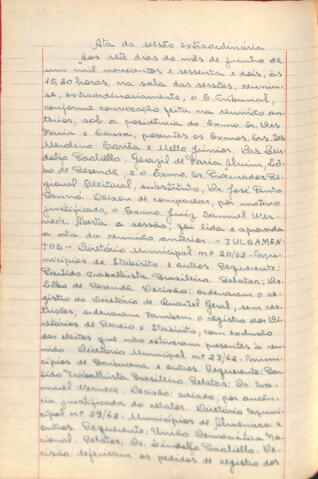 Ata da sessão extraordinária
Aos sete dias do mês de junho de
um mil novecentos e sessenta e dois, às
15,30 horas, na sala das sessões, reuniu-
se, extraordinariamente, o E. Tribunal,
conforme convocação feita na reunião an-
terior, sob a presidência do Exmo. Sr. Des.
Faria e Sousa, presentes os Exmos. Srs. Des.
Merolino Corrêa e Mello Júnior, Drs. Lin-
dolfo Paoliello, Geragil de Faria Alvim,
de Resende, e o Exmo. Sr. Procurador Re-
gional Eleitoral, substituto, Dr. José Pinto
Renná. Deixou de comparecer, por motivo
justificado, o Exmo. Juiz Samuel Wer-
neck. Aberta a sessão, foi lida e aprovada
a ata da reunião anterior. - JULGAMEN-
TOS - Diretório Municipal nº 20/62. Mu-
nicípios de Itabirito e outros. Requerente:
Partido Trabalhista Brasileiro. Relator: Dr.
de Resende. Decisão: ordenaram o re-
gistro do Diretório de Quartel Geral, sem res-
trições; ordenaram também o registro dos Di-
retórios de e Itabirito, com exclusão
dos eleitos que não estiveram presentes à reu-
nião. Diretório Municipal nº 27/62. Muni-
cípios de Barbacena e outros. Requerente: Par-
tido Trabalhista Brasileiro. Relator: Dr. Sa-
muel Werneck. Decisão: adiado, por ausên-
cia justificada do relator. Diretório Munici-
pal nº 39/62. Municípios de Almenara e
outros. Requerente: União Democrática Na-
cional. Relator: Dr. Lindolfo Paoliello. De-
cisão: deferiram os pedidos de registro dos